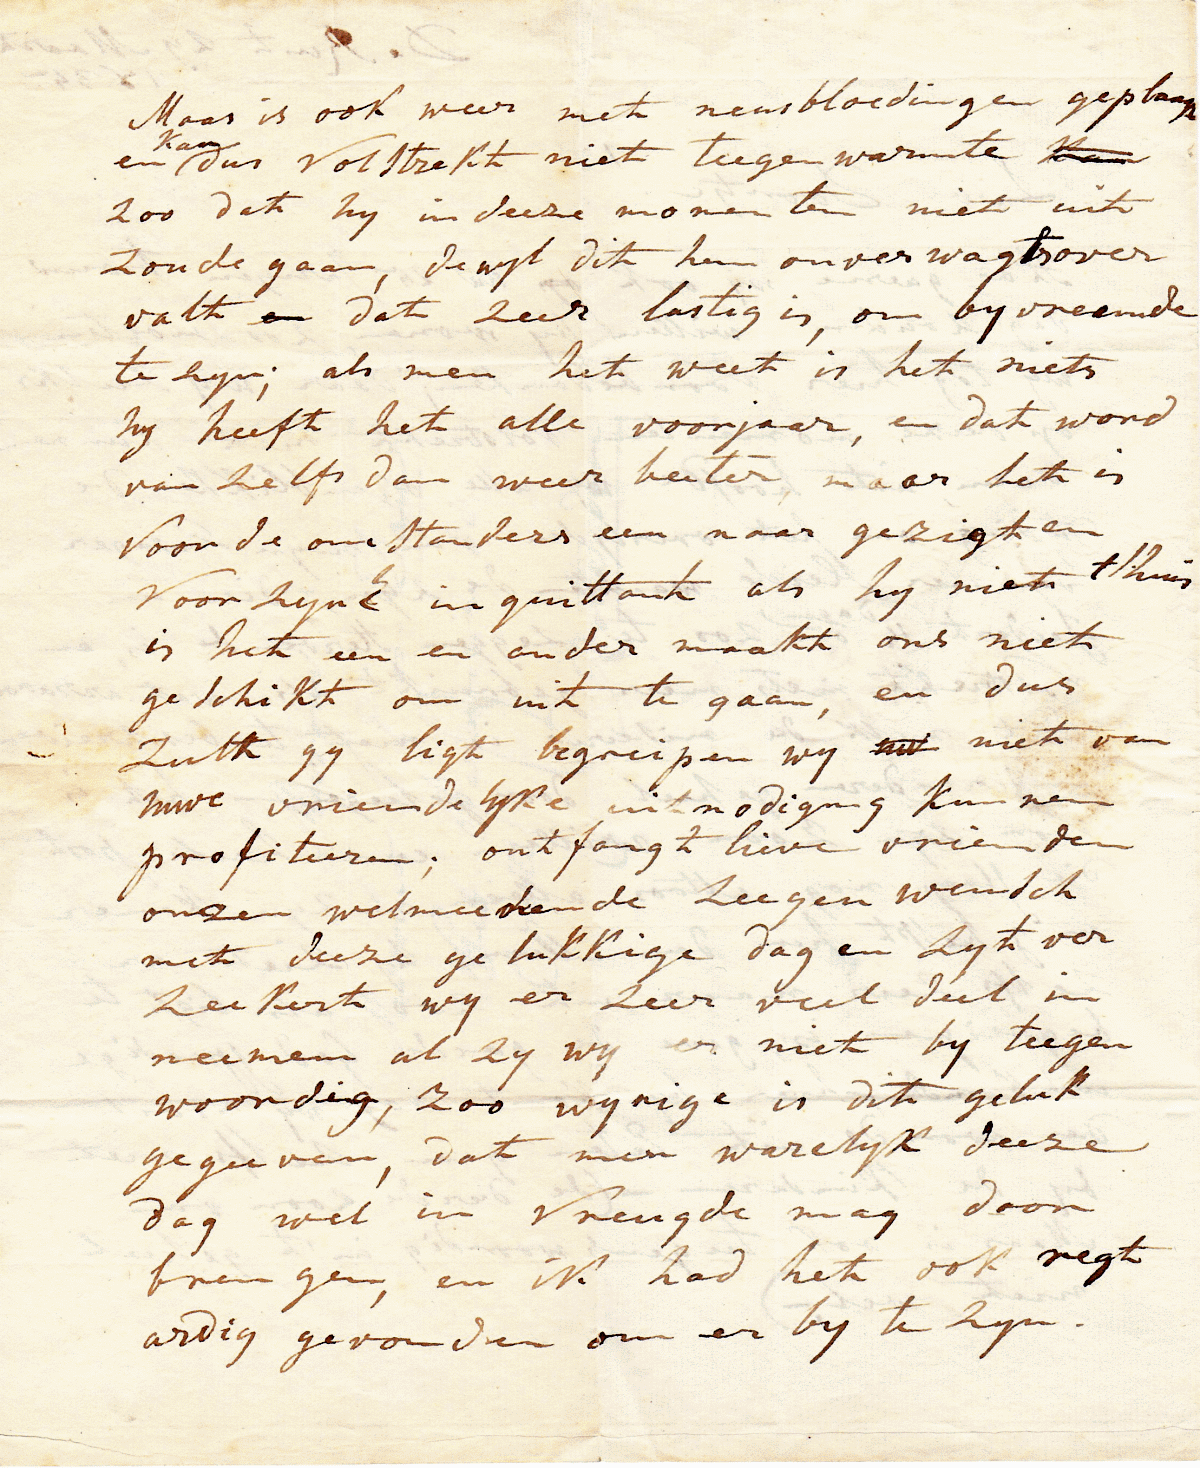 Maas is ook weer met neusbloedingen geplaagt
en kan dus volstrekt niet teegen warmte kan
zoo dat hy in deeze momenten niet uit
zoude gaan, dewyl dit hem onverwagts over
valt en dat zeer lastig is, om by vreemde
te zyn; als men het weet is het niets
hy heeft het alle voorjaar, en dat word
van zelfs dan weer beeter, maar het is
voor de omstanders een naar gezigt en
voor zyn E inquittant als hy niet t'huis
is het een en ander maakt ons niet
geschikt om uit te gaan, en dus
zult gy ligt begreipen wy niet van
uwe vriendelyke uitnodiging kunnen
profiteeren; ontfangt lieve vrienden
onzen welmeenende zeegen wensch
met deeze gelukkige dag en zyt ver
zeekert wy er zeer veel deel in
neemen al zy wy er niet by teegen
woordig, zoo wynige is dit geluk
gegeeven, dat men warelyk deeze
dag wel in vreugde mag door
brengen, en ik had het ook regt
ardig gevonden om er by te zyn.